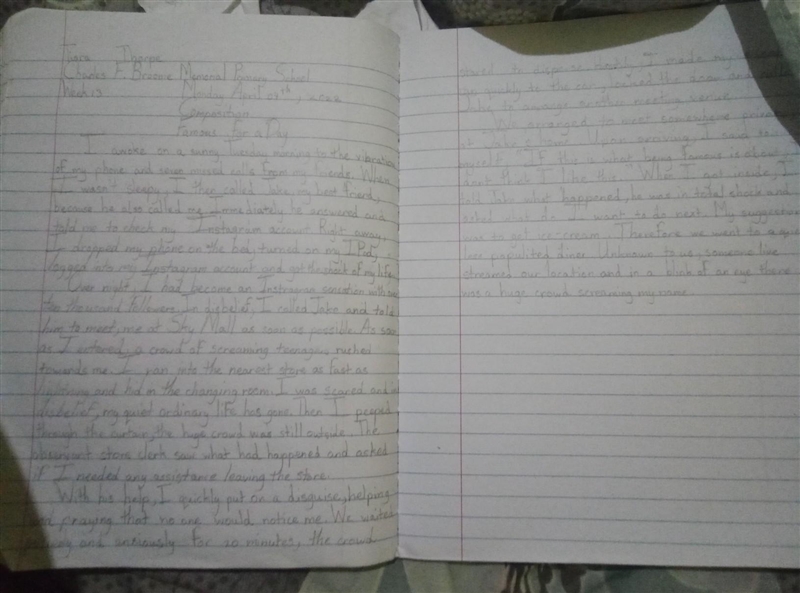 Tiara Thorpe
Charles F. Broome Memorial Primary School
Week 13 Monday April
Composition
Famous for a Day
I awoke on a sunny Tuesday morning to the vibration
of my phone and seven missed calls from my friends. When
I wasn't sleepy, I then called Jake my best friend,
because he also called me. Immediately he answered and
told me to check my Instagram account. Right away,
I dropped my phone on the bed, turned on my IPad,
logged into my Instagram account and got the shock of my life.
Over night, I had become an Instagram sensation with over
two thousand followers. In disbelief, I called Jake and told
him to meet me at Sky Mall as soon as possible. As soon
as I entered, a crowd of screaming teenagers rushed
towards me. I ran into the nearest store as fast as
lightning and hid in the changing room. I was scared and in
disbelief, my quiet ordinary life has gone. Then I peeped
through the curtain, the huge crowd was still outside. The
observant store clerk saw what had happened and asked
if I needed any assistance leaving the store.
With his help, I quickly put on a disguise, helping
and praying that no one would notice me. We waited
and anxiously for 20 minutes, the crowd
to disperse. I made my
go quickly to the car, and
Jake to arrange another meeting venue.
We arranged to meet somewhere private
at Jake's house. Upon arriving I said to
myself, "If this is what being famous is about I
don't think I like this." When I got inside, I
told Jake what happened, he was in total shock and
asked what do I want to do next. My suggestion
was to get ice-cream. Therefore we went to a quiet
less populited diner. Unknown to us, someone live
streamed our location and in a blink of an eye there
was a huge crowd screaming my name.